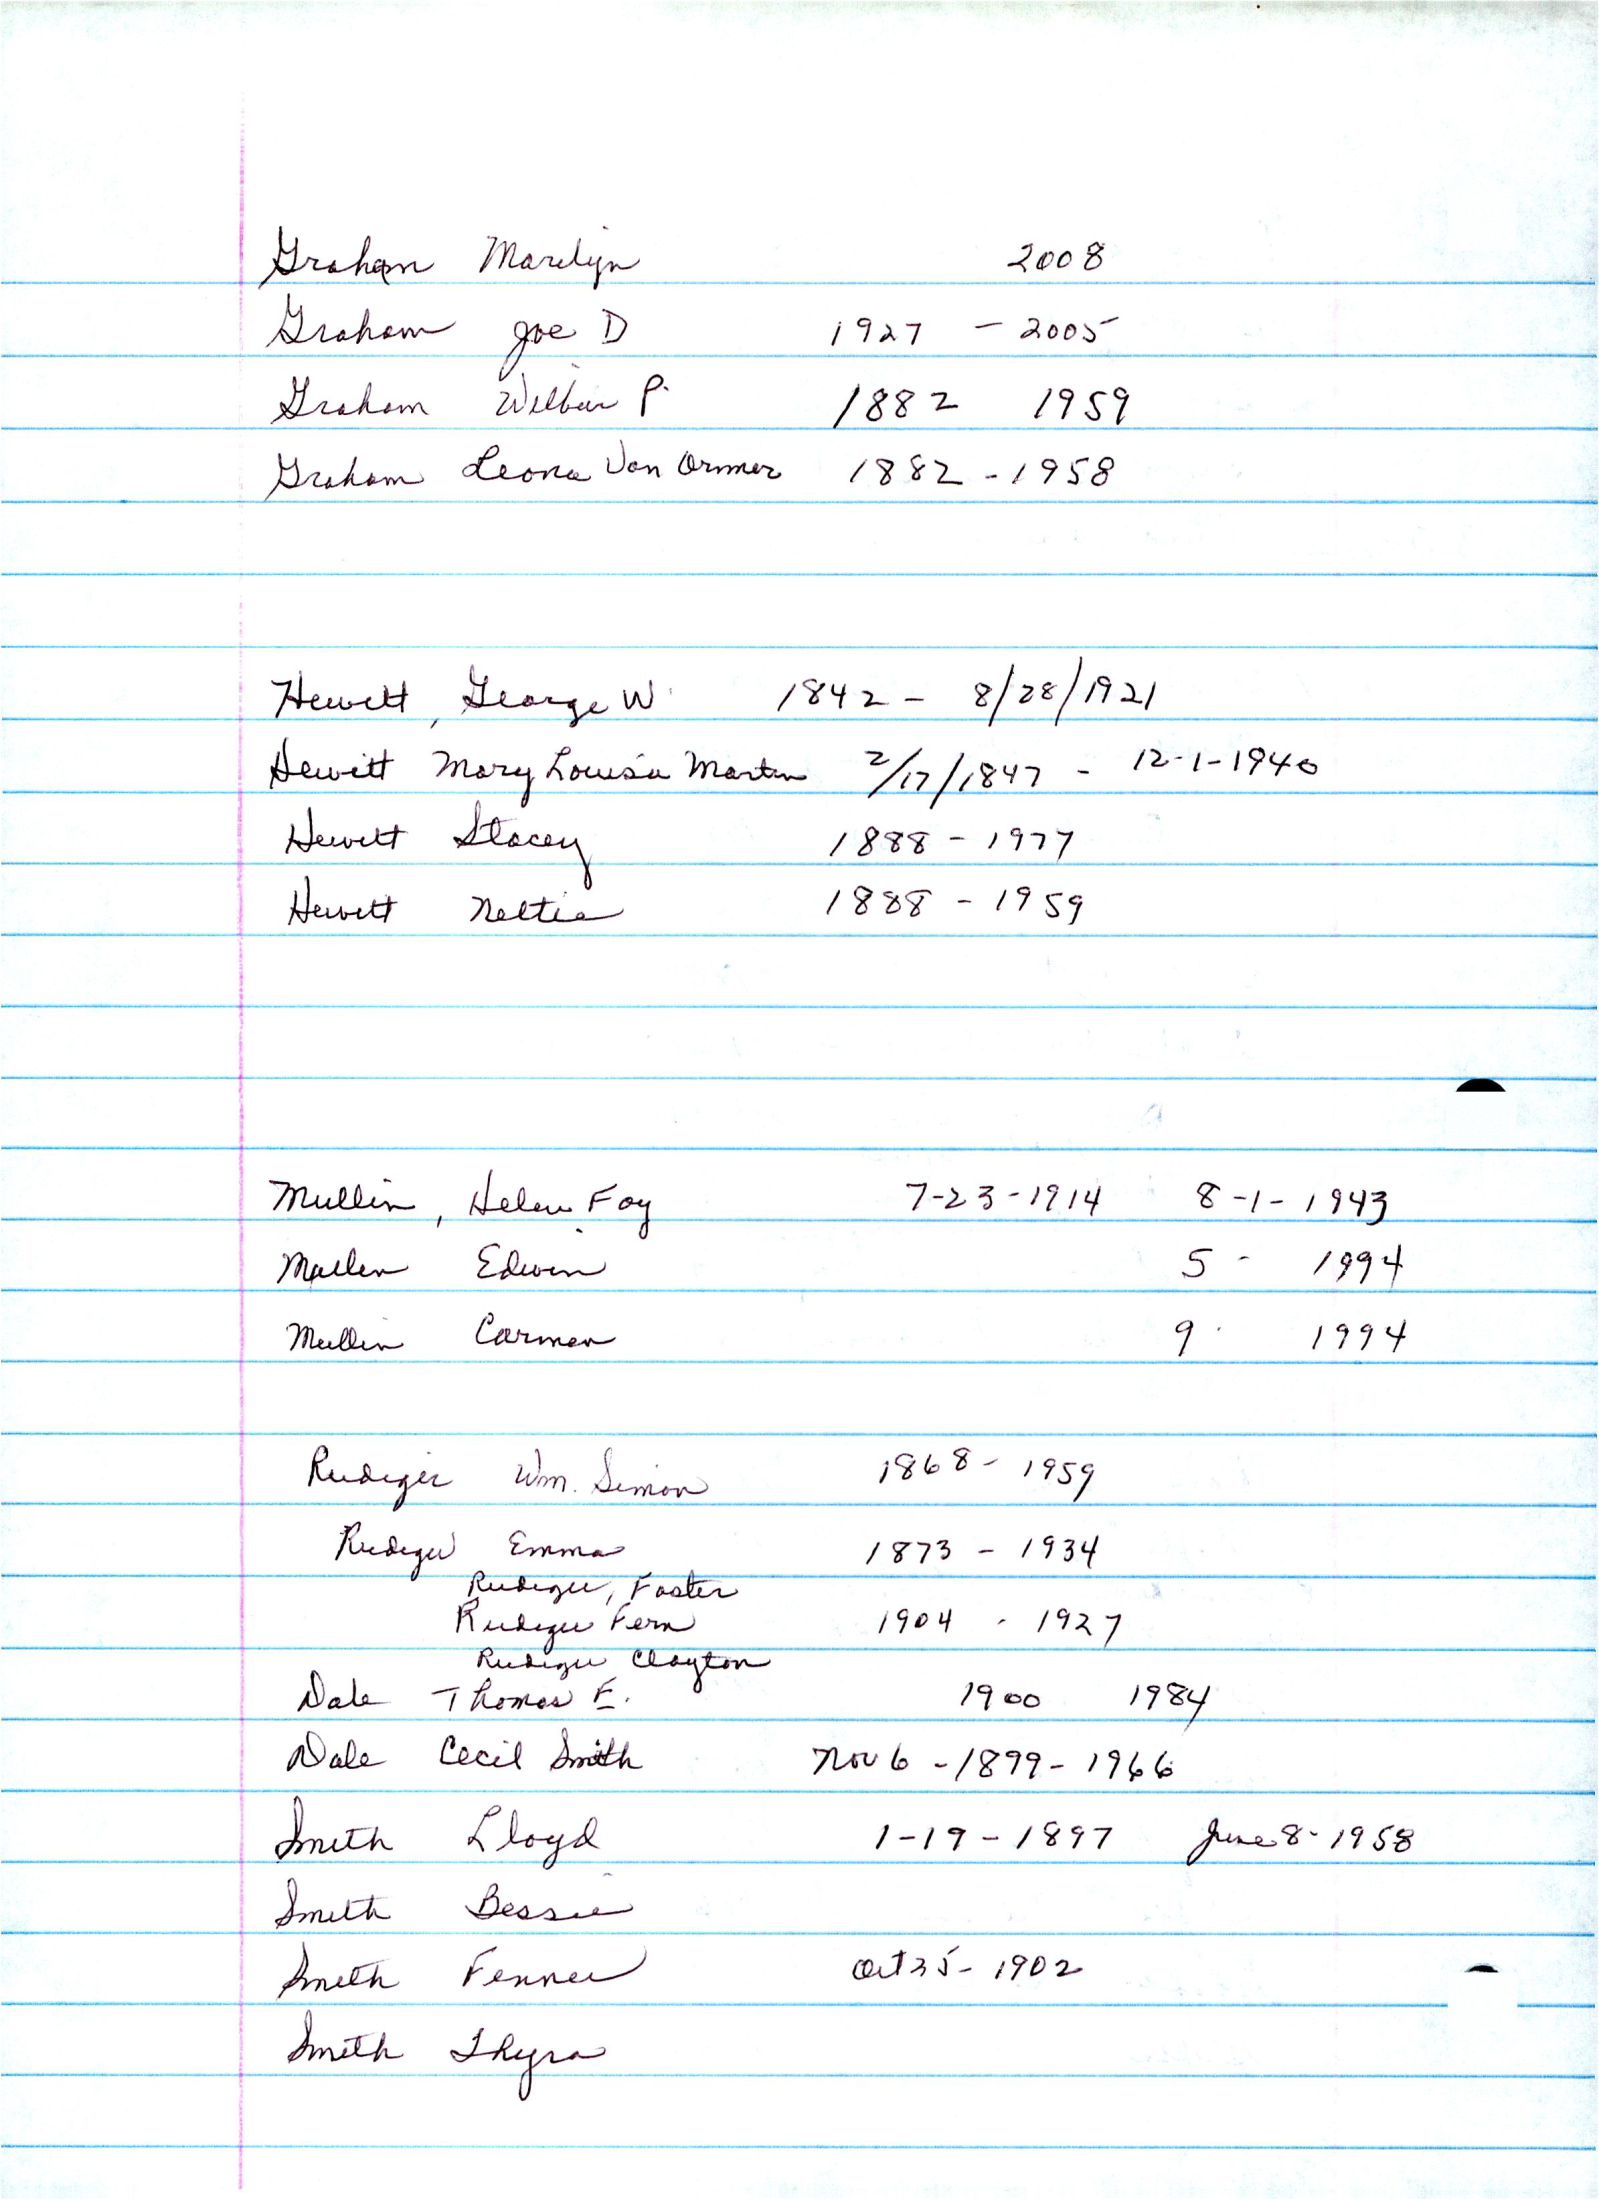 Graham Marilyn 2008
Graham Joe D 1927 - 2005
Graham Wilbur P. 1882 1959
Graham Leona Van Ormer 1882 - 1958
Hewett, George W. 1842 - 8/28/1921
Hewitt Mary Louisa Martin 2/17/1847 - 12-1-1940
Hewett Stacey 1888 - 1977
Hewett Nettie 1888 - 1959
Mullin, Helen Foy 7-23-1914 8-1-1943
Mullen Edwin 5 - 1994
Mullin Carmen 9 1994
Rudiger Wm. Simon 1868 - 1959
Rudiger Emma 1873 - 1934
Rudiger, Foster
Rudiger Fern 1904 - 1927
Rudiger Clayton
Dale Thomas E. 1900 1984
Dale Cecil Smith Nov 6 - 1899 - 1966
Smith Lloyd 1-19-1897 June 8-1958
Smith Bessie
Smith Fenner Oct 25 - 1902
Smith Thyra